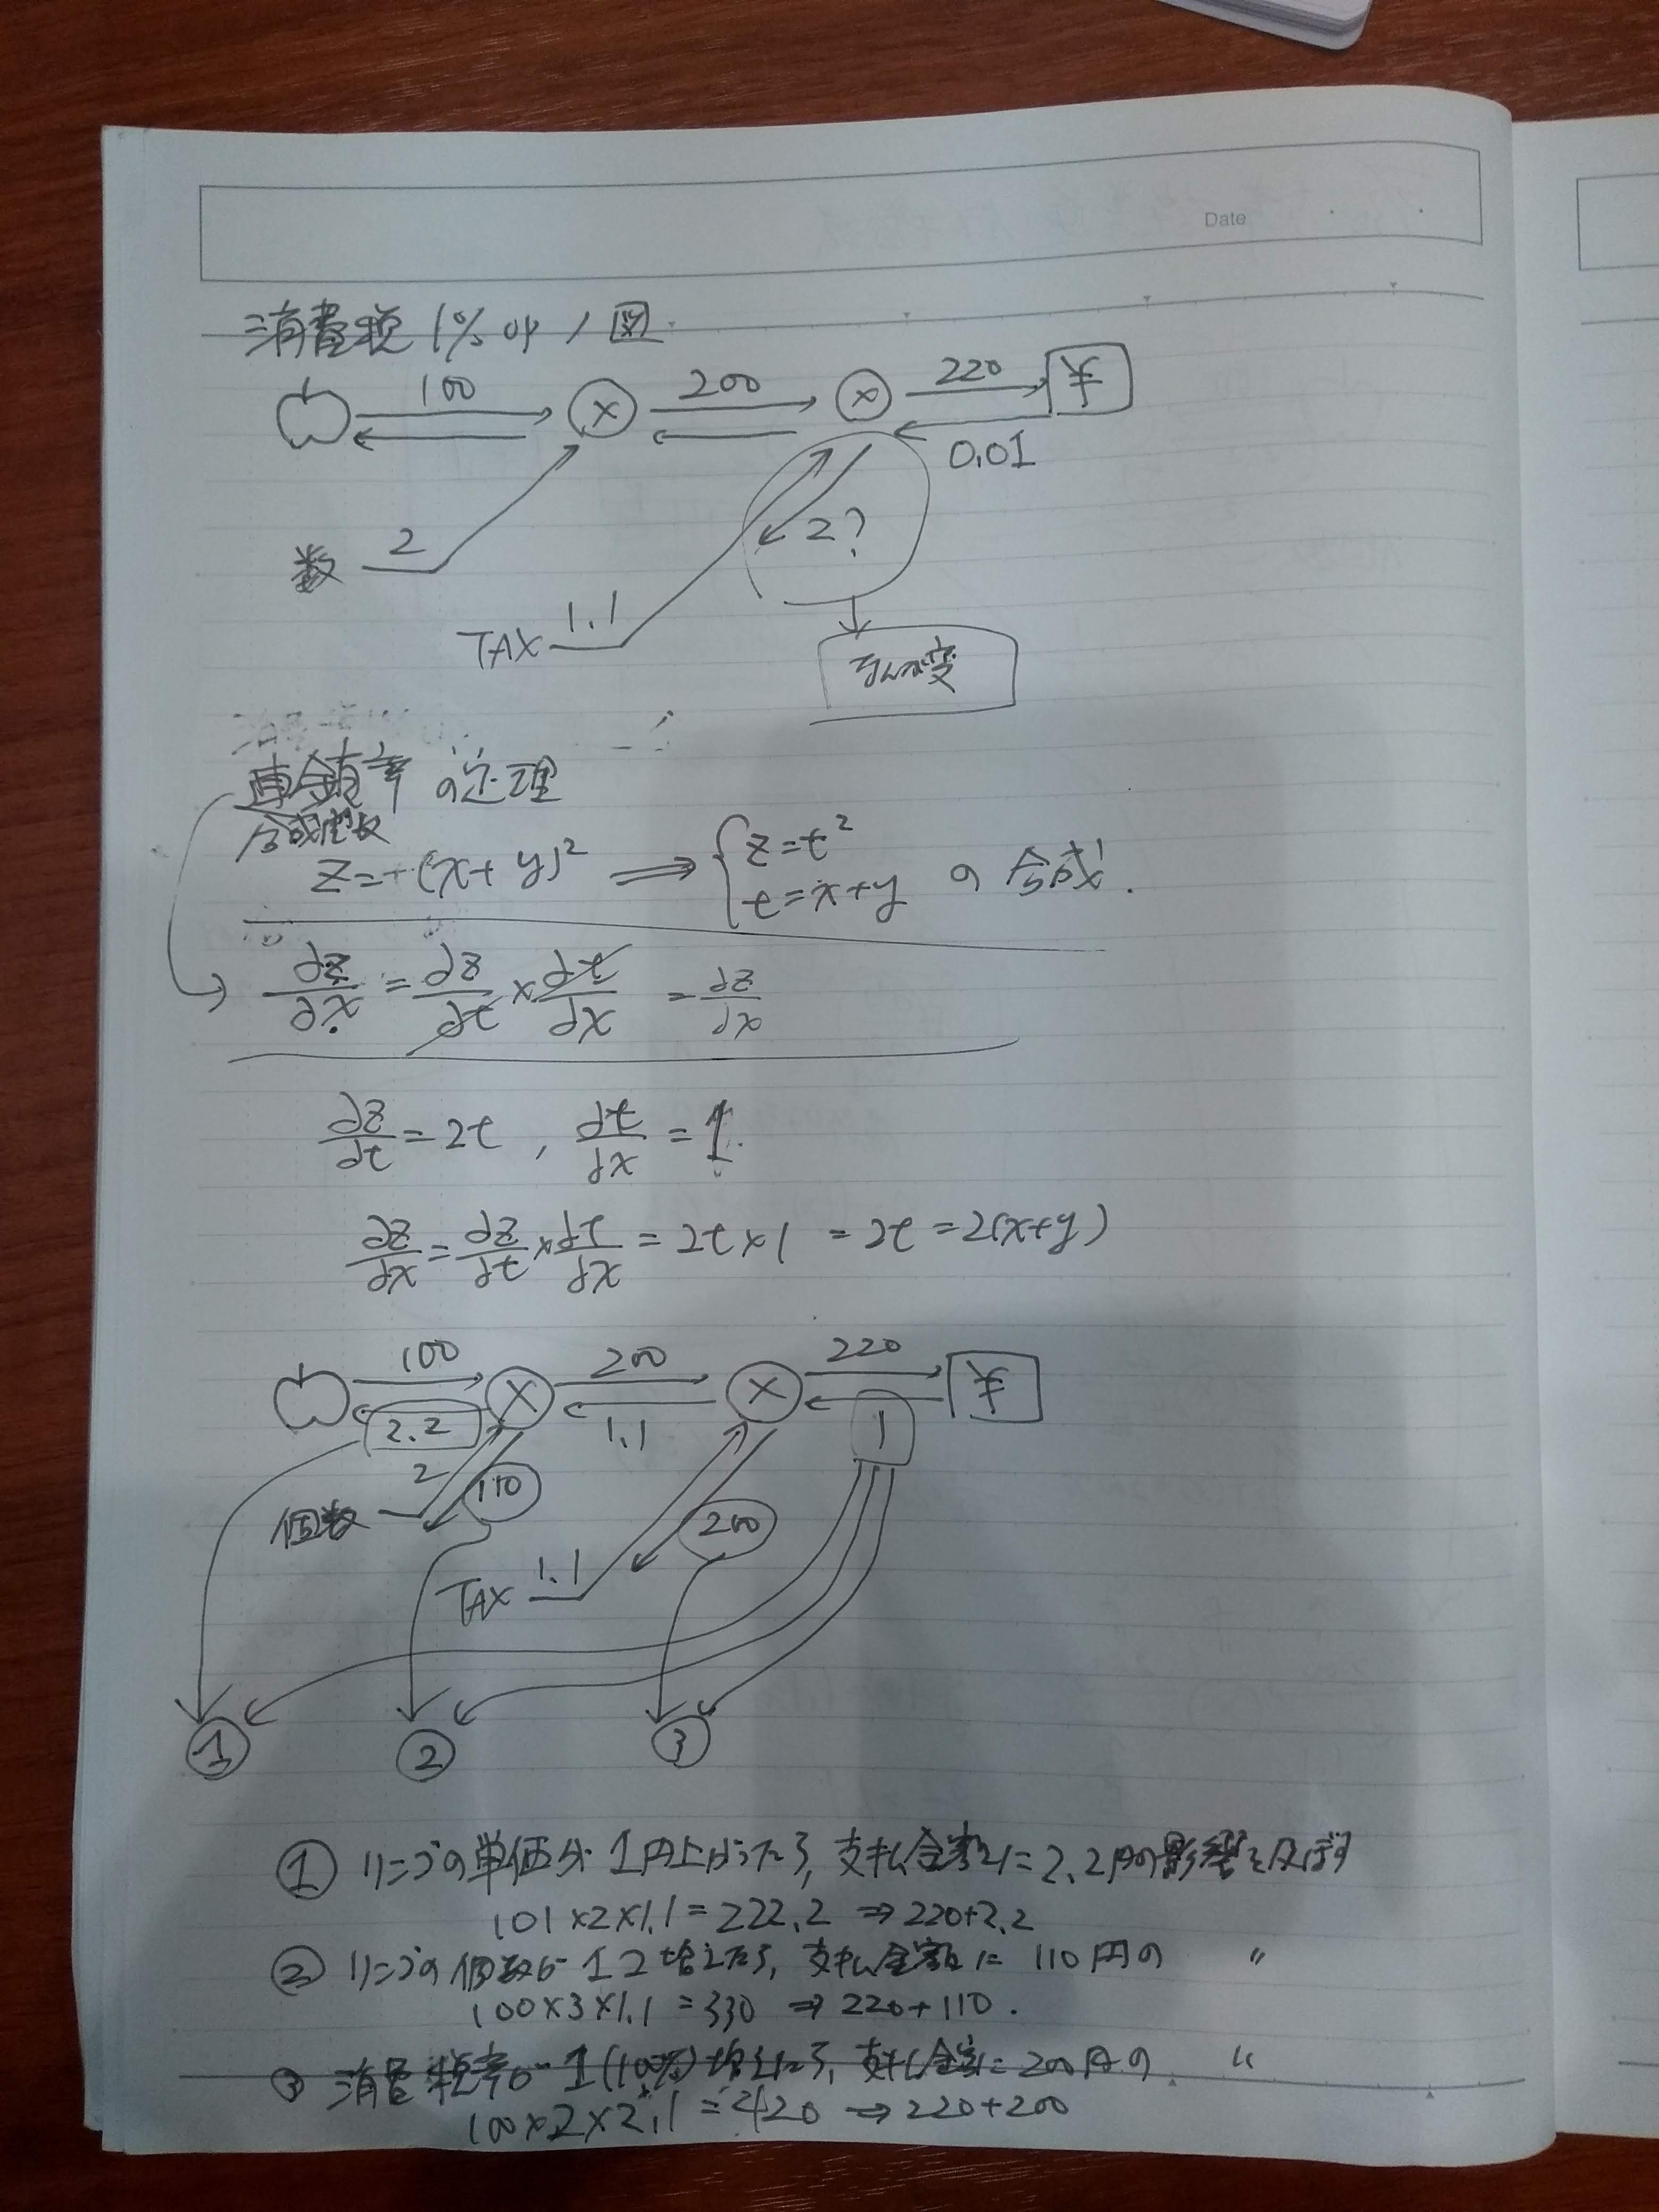 Date
消費税 1% up ノ図
100 × 200 × 220 ¥
0.01
数 2
2?
TAX 1.1
連鎖率の定理
合成関数
z=(x+y)² ⟹ { z=t²
t=x+y の合成.
∂z/∂x = ∂z/∂t × ∂t/∂x = ∂z/∂x
∂z/∂t = 2t , ∂t/∂x = 1.
∂z/∂x = ∂z/∂t × ∂t/∂x = 2t×1 = 2t = 2(x+y)
100 × 200 × 220 ¥
2.2 1.1 1
2 110
個数
200
TAX 1.1
① ② ③
① リンゴの単価が1円上がったら, 支払金額に2.2円の影響を及ぼす
101×2×1.1=222.2 ⇒ 220+2.2
② リンゴの個数が1コ増えたら, 支払金額に 110円の 〃
100×3×1.1=330 ⇒ 220+110.
③ 消費税率が1(100%)増えたら, 支払金額に200円の 〃
100×2×2.1=420 ⇒ 220+200